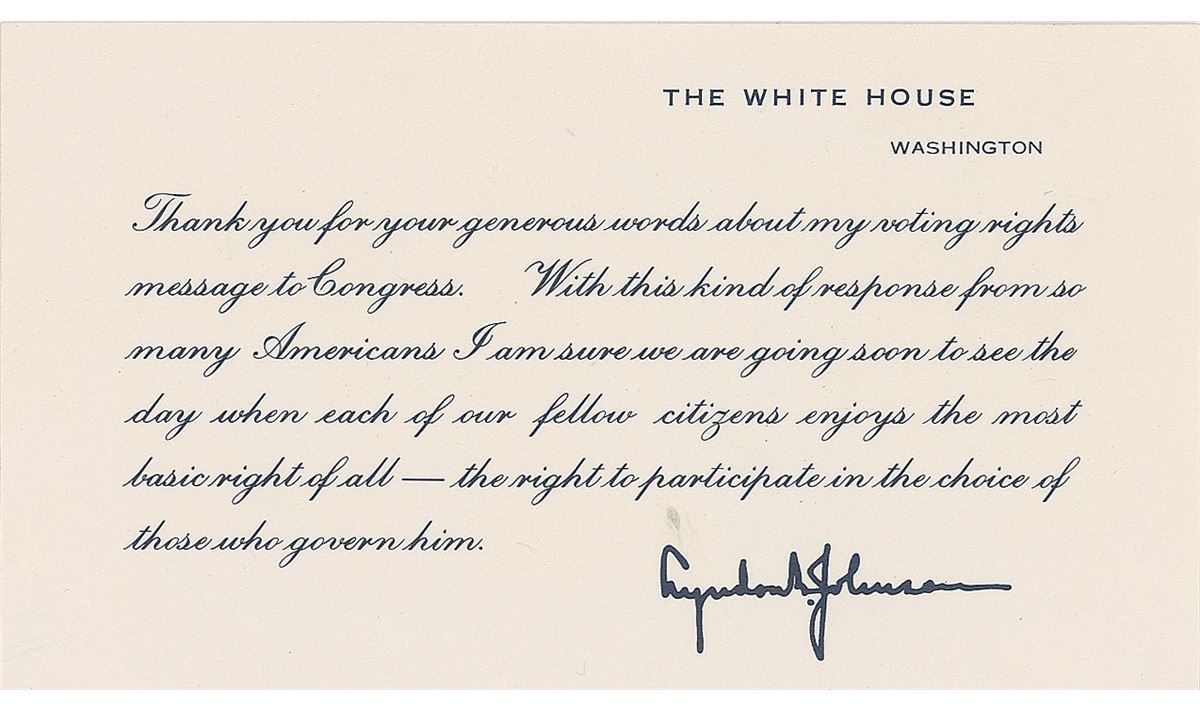 THE WHITE HOUSE
WASHINGTON
Thank you for your generous words about my voting rights
message to Congress. With this kind of response from so
many Americans I am sure we are going soon to see the
day when each of our fellow citizens enjoys the most
basic right of all — the right to participate in the choice of
those who govern him.
Lyndon B. Johnson